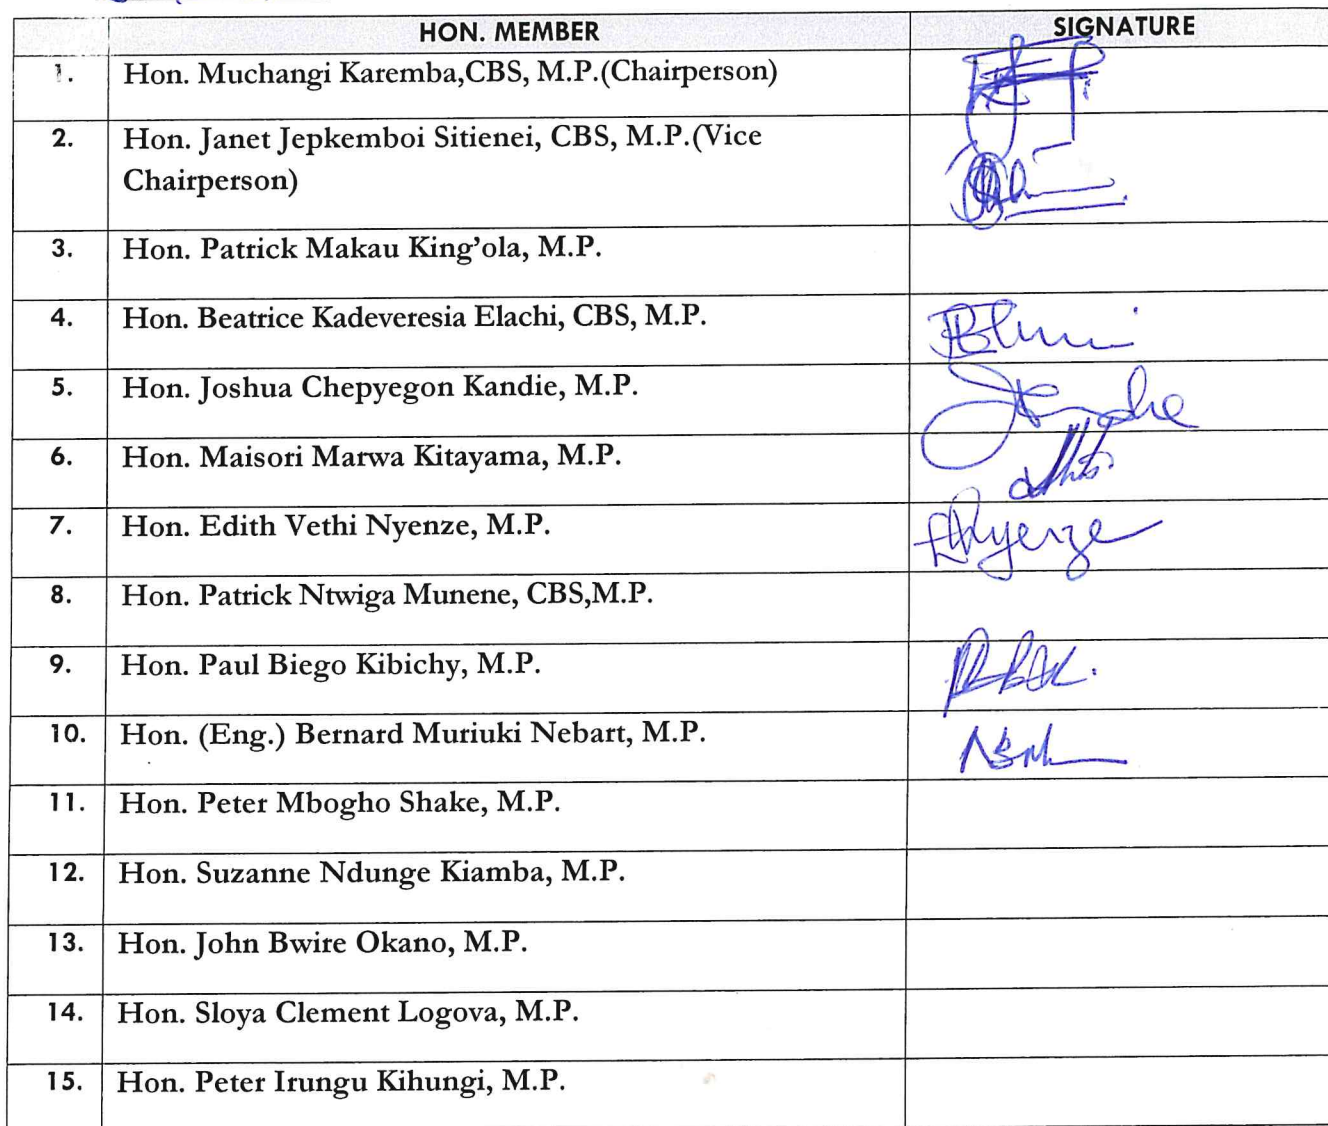 HON. MEMBER SIGNATURE
1. Hon. Muchangi Karemba,CBS, M.P.(Chairperson)
2. Hon. Janet Jepkemboi Sitienei, CBS, M.P.(Vice
Chairperson)
3. Hon. Patrick Makau King'ola, M.P.
4. Hon. Beatrice Kadeveresia Elachi, CBS, M.P.
5. Hon. Joshua Chepyegon Kandie, M.P.
6. Hon. Maisori Marwa Kitayama, M.P.
7. Hon. Edith Vethi Nyenze, M.P.
8. Hon. Patrick Ntwiga Munene, CBS,M.P.
9. Hon. Paul Biego Kibichy, M.P.
10. Hon. (Eng.) Bernard Muriuki Nebart, M.P.
11. Hon. Peter Mbogho Shake, M.P.
12. Hon. Suzanne Ndunge Kiamba, M.P.
13. Hon. John Bwire Okano, M.P.
14. Hon. Sloya Clement Logova, M.P.
15. Hon. Peter Irungu Kihungi, M.P.